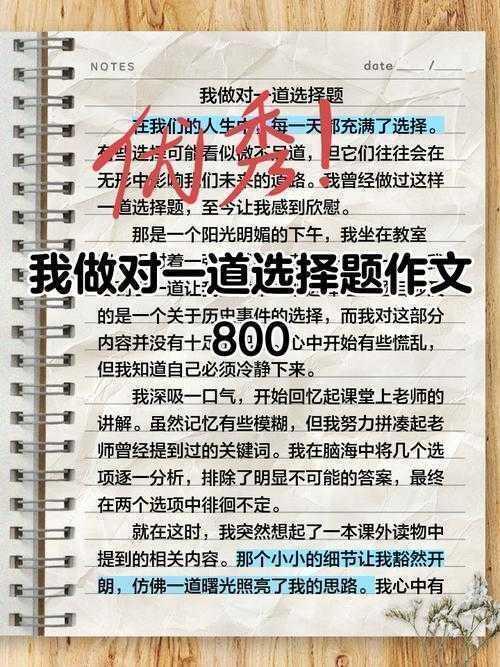 NOTES
date
我做对一道选择题
在我们的人生中，每一天都充满了选择。
有些选择可能看似微不足道，但它们往往会在
无形中影响我们未来的道路。我曾经做过这样
一道选择题，至今让我感到欣慰。
优秀！
那是一个阳光明媚的下午，我坐在教室
我做对一道选择题作文
800
的是一个关于历史事件的选择，而我对这部分
内容并没有十足 心中开始有些慌乱，
但我知道自己必须冷静下来。
我深吸一口气，开始回忆起课堂上老师的
讲解。虽然记忆有些模糊，但我努力拼凑起老
师曾经提到过的关键词。我在脑海中将几个选
项逐一分析，排除了明显不可能的答案，最终
在两个选项中徘徊不定。
就在这时，我突然想起了一本课外读物中
提到的相关内容。那个小小的细节让我豁然开
朗，仿佛一道曙光照亮了我的思路。我心中有